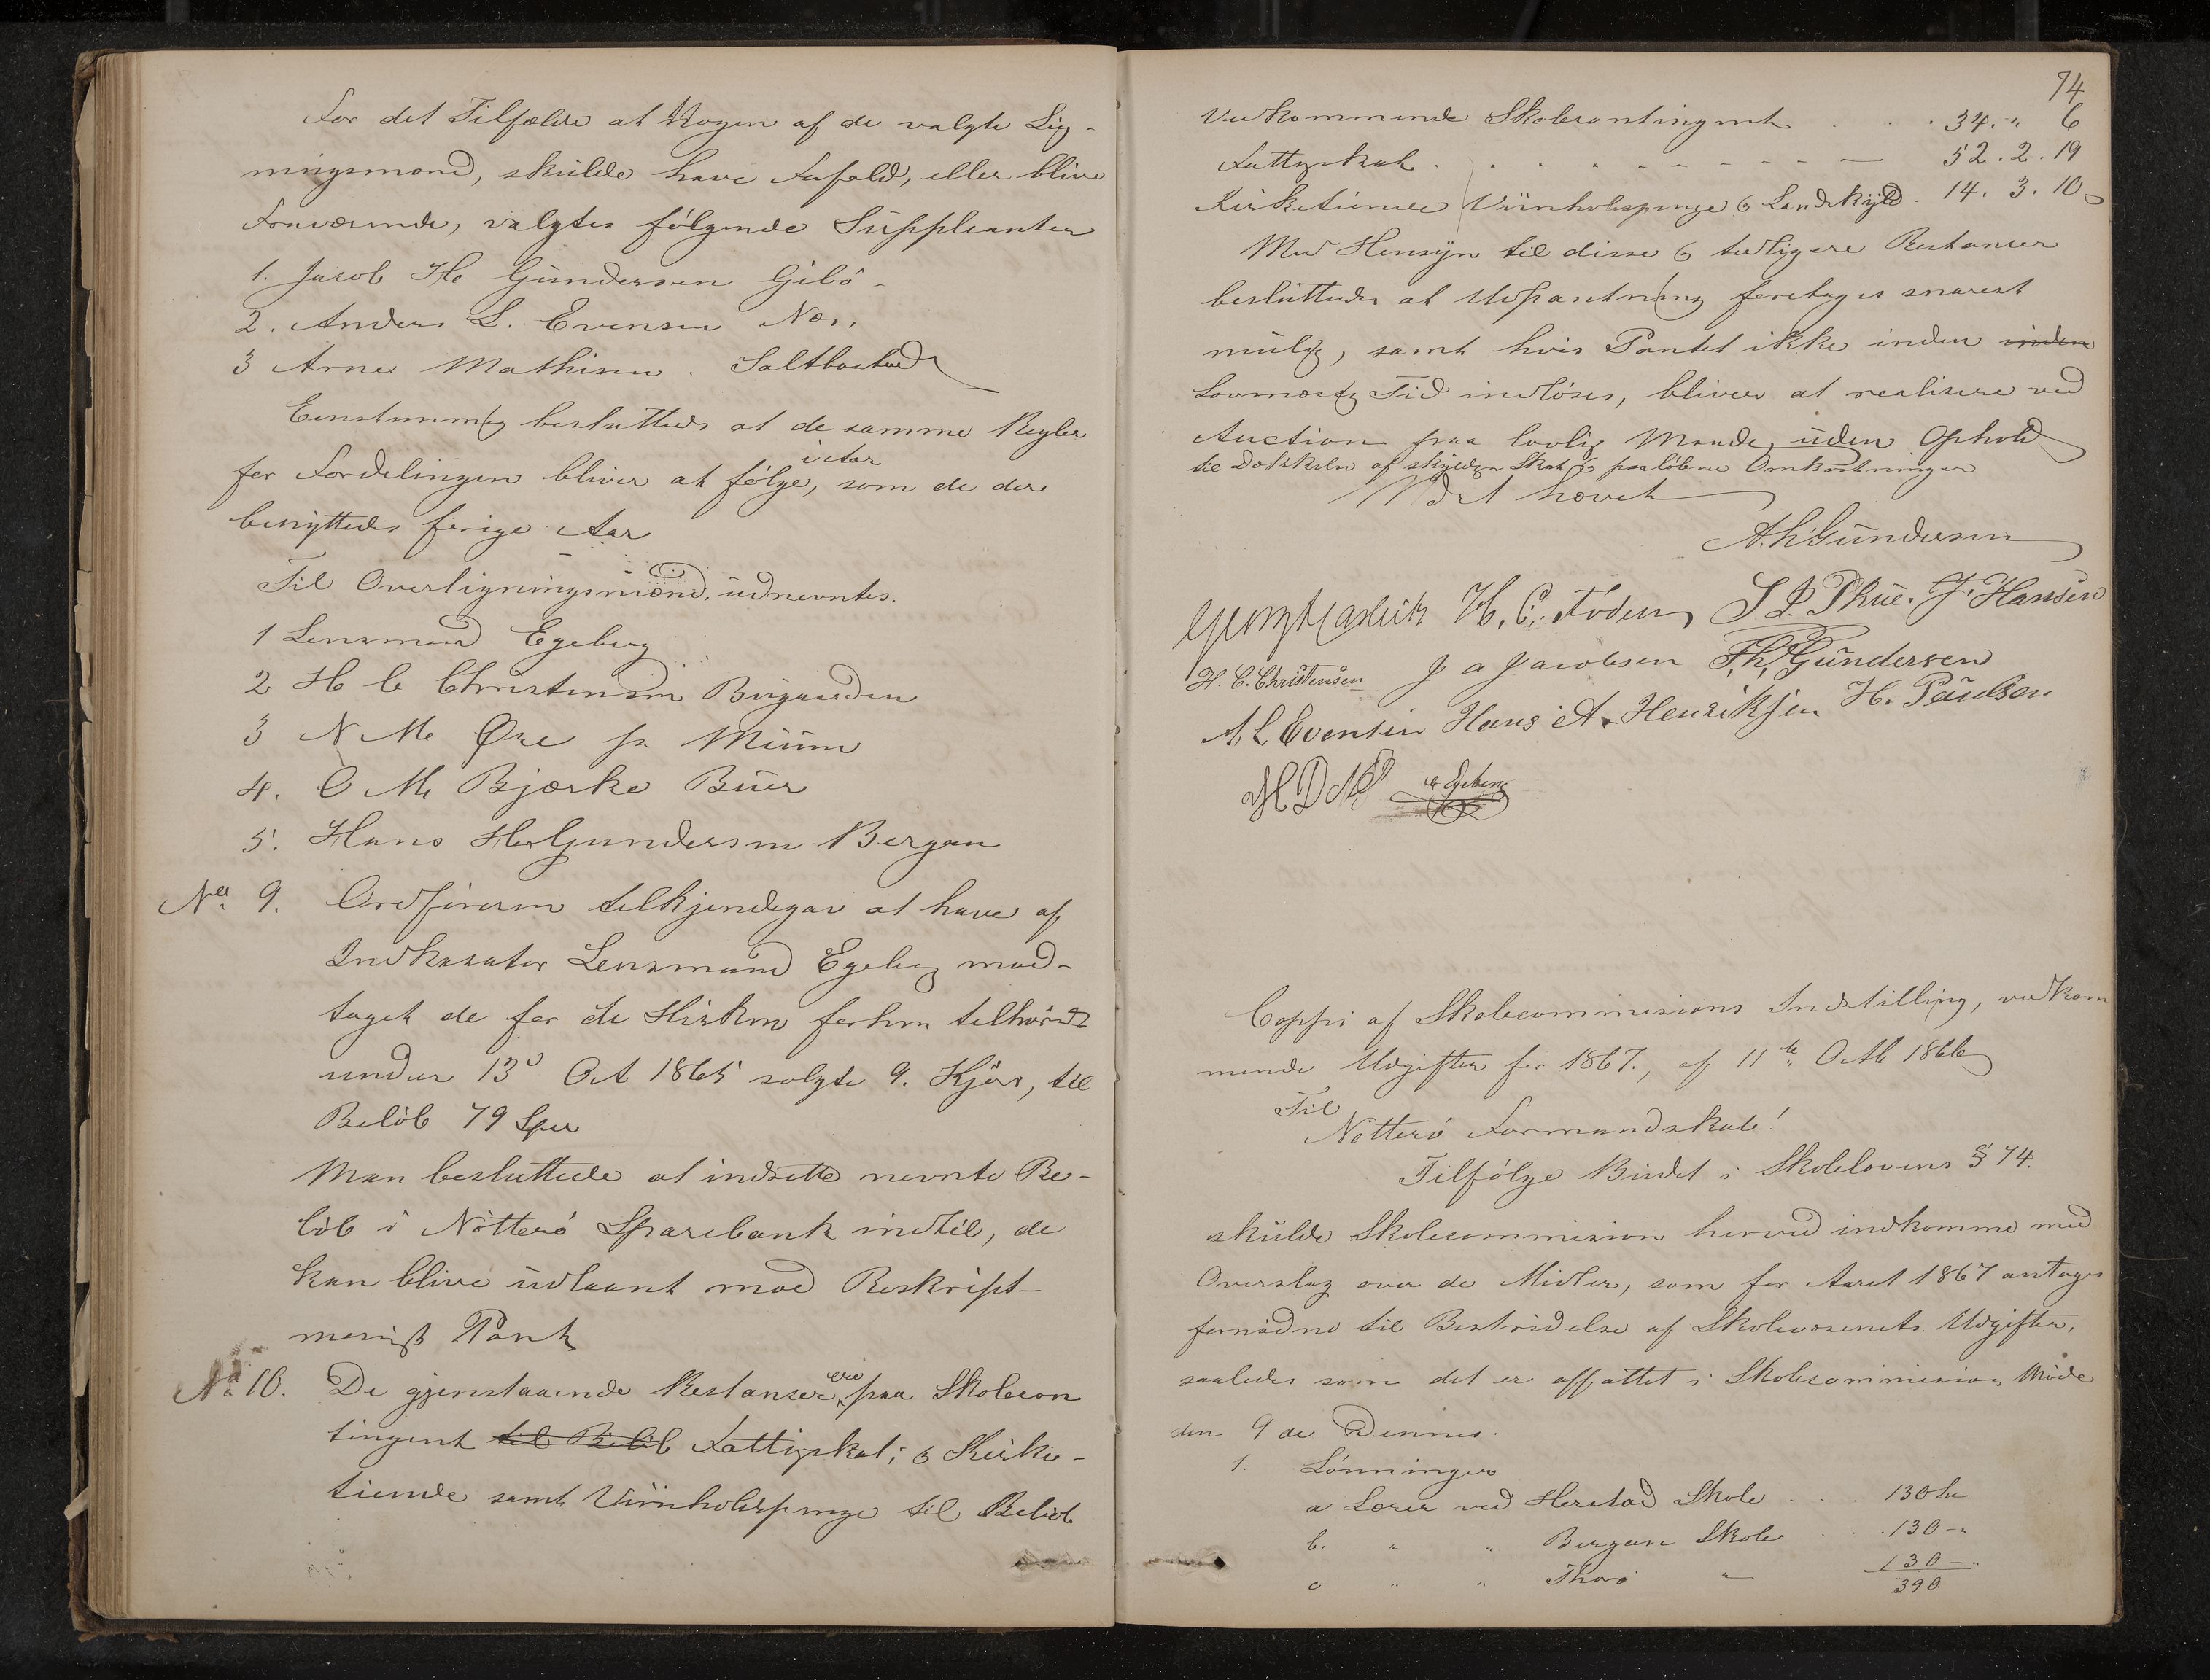 For det Tilfælde at Nogen af de valgte Lig-
ningsmænd, skulde have Forfald, eller blive
Fraværende, valgtes følgende Suppleanter
1. Jacob H Gundersen Gibö
2. Anders L. Evensen Næs.
3 Arnes Mathisen. Saltbostad
Eenstemmig besluttedes at de samme Regler
for Fordelingen bliver at følge, i Aar som de der
benyttedes forige Aar
Til Overligningsmænd udnevntes.
1 Lensmand Egeberg
2 H C Christensen Bugaarden
3 N M Øre fr Muum
4. O M Bjærke Buer
5. Hans H Gundersen Bergan
No 9. Ordføreren tilkjendegav at have af
Indkasator Lensmand Egeberg mod-
taget de for de Kirken forhen tilhörende
under 13d Oct 1865 solgte 9. Kjør, til
Beløb 79 Spd
Man besluttede at indsætte nevnte Be-
löb i Nötterö Sparebank indtil, de
kan blive udlaant mod Reskript-
mæssigt Pant
No 10. De gjenstaaende Restanser paa Skolecon
tingent til Beløb Fattigskat; & Kirke-
tiende samt Viinholdspenge til Beløb
74
Vedkommende Skolecontingent . . . 34. " 6
Fattigskat . . . . . . . 52. 2. 19
Kirketiende Viinholdspenge & Landskyld. 14. 3. 10
Med Hensyn til disse & tidligere Restanser
besluttedes at Udpantning foretages snarest
mulig, samt hvis Pantet ikke inden inden
Lovmæssig Tid indløses, bliver at realisere ved
Auction paa lovlig Maade, uden Ophold
til Dækkelse af skyldig Skat & paaløbne Omkostninger
Mødet hævet
A. H. Gundersen
H. C. Foden S P Thue. J. Hansen
H. C. Christensen J A Jacobsen Th. Gundersen
A. L Eventsen Hans A. Henriksen H. Paulsen
Egeberg
Coppi af Skolecommisions Indstilling, vedkom
mende Udgifter for 1867., af 11te Octb 1866
Til
Nötterö Formandskab!
Tilfölge Budet i Skolelovens § 74.
skulde Skolecommision herved indkomme med
Overslag over de Midler, som for Aaret 1867 antages
fornödne til Bestridelse af Skolevæsenets Udgifter,
saaledes som det er affattet i Skolecommisions Möde
den 9 de Dennes.
1. Lønninger
a Lærer ved Herstad Skole . . . 130
b. " " Bergan Skole . . . 130 - "
c " " Thorö " 130 - "
390